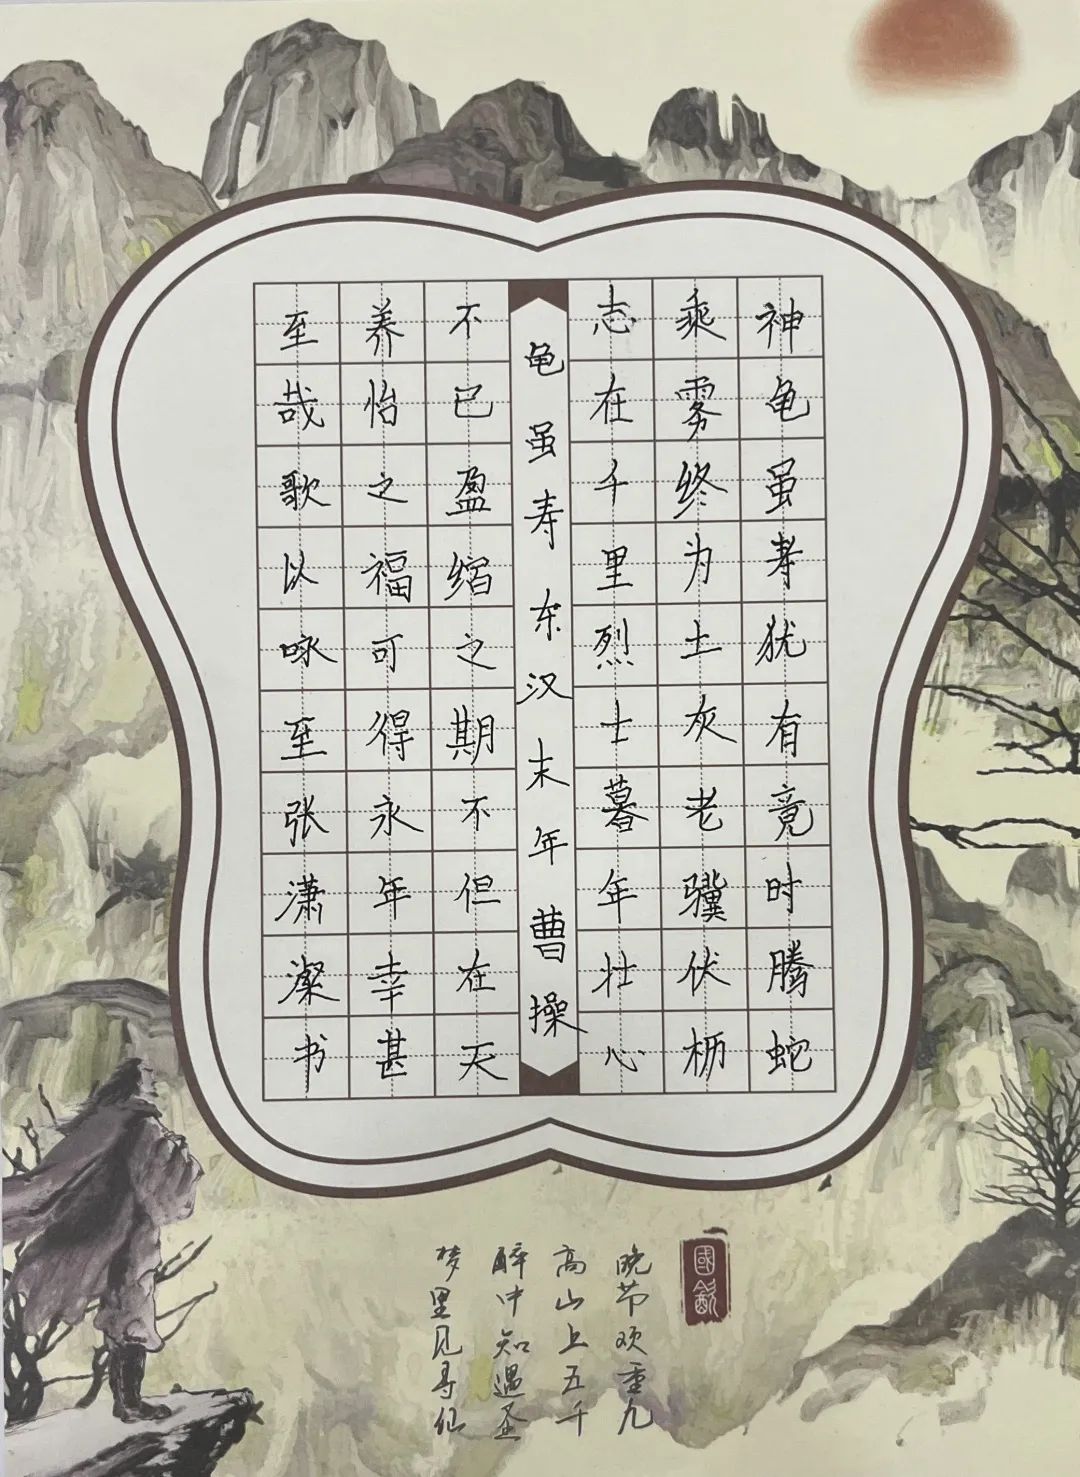 神龟虽寿犹有竟时腾蛇
乘雾终为土灰老骥伏枥
志在千里烈士暮年壮心
龟虽寿东汉末年曹操
不已盈缩之期不但在天
养怡之福可得永年幸甚
至哉歌以咏至张潇濴书
國
晚节欢重九
高山上五千
醉中知遇圣
梦里见寻仙